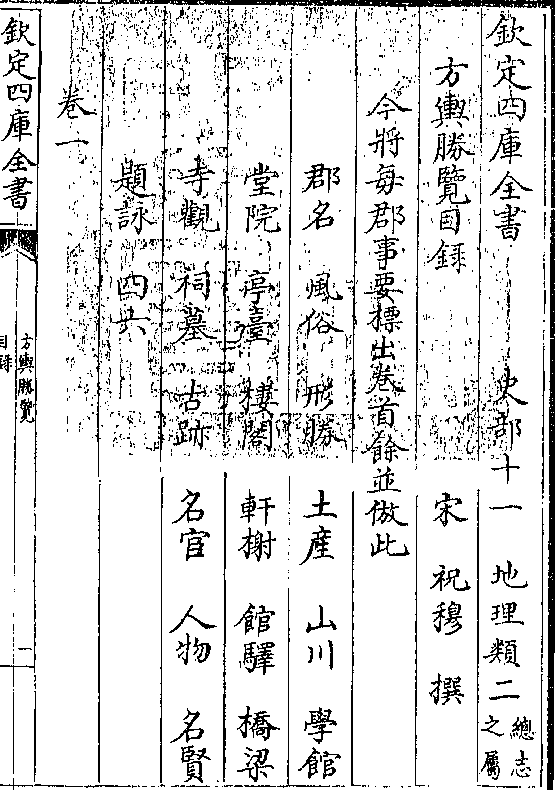 欽定四庫全書　史部十一　地理類二總志之屬
方輿勝覽目録　宋　祝穆　撰
今將每郡事要標出卷首餘並倣此
郡名　風俗　形勝　土産　山川　學館
堂院　亭臺　樓閣　軒榭　館驛　橋梁
寺觀　祠墓　古跡　名宦　人物　名賢
題詠　四六
卷一
欽定四庫全書
方輿勝覽
目録
一